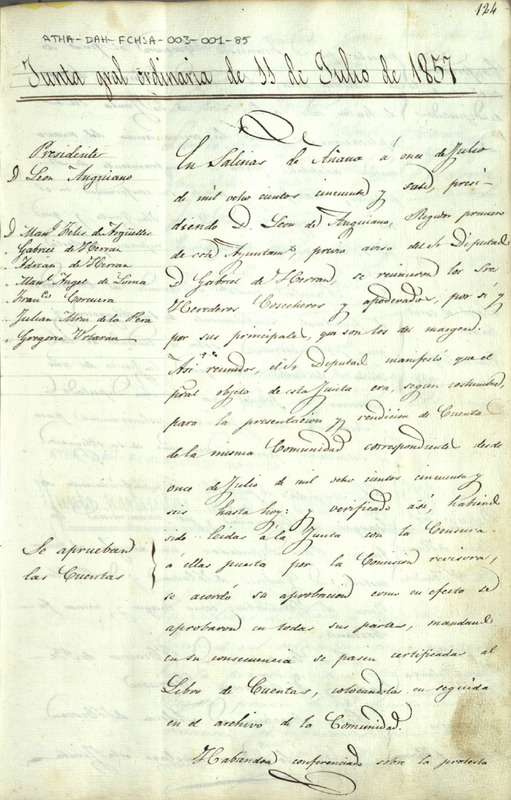 124
ATHA-DAH-FCHSA-003-001-85
Junta gral ordinaria de 11 de Julio de 1857
Presidente
D Leon Anguiano
D. Man.l Felix de Argüelles
Gabriel de Herran
de Herran
Man.l Angel de Loma
Fran.co Corcuera
Julian Mrn. de la Pera
Gregorio
En Salinas de Añana á once de Julio
de mil ocho cientos cincuenta y siete, presi-
diendo D. Leon de Anguiano, Regidor primero
de este Ayuntam.to, previo aviso del Sr Diputado
D Gabriel de Herran, se reunieron los Sres
Herederos Cosecheros y apoderados, por sí y
por sus principales, que son los del margen.
Asi reunidos, el Sr Diputado manifestó que el
pral objeto de esta Junta era, segun costumbre,
para la presentacion y rendicion de Cuentas
de la misma Comunidad correspondiente desde
once de Julio de mil ocho cientos cincuenta y
seis hasta hoy: y verificado asi, habiendo
sido leidas á la Junta con la Censura
á ellas puesta por la Comision revisora,
se acordó su aprobacion como en efecto se
aprobaron en todas sus partes, mandando
en su consecuencia se pasen certificadas al
Libro de Cuentas, colocandolas en seguida
en el archivo de la Comunidad.
Se aprueban
las Cuentas
Habiendose conferenciado sobre la protesta